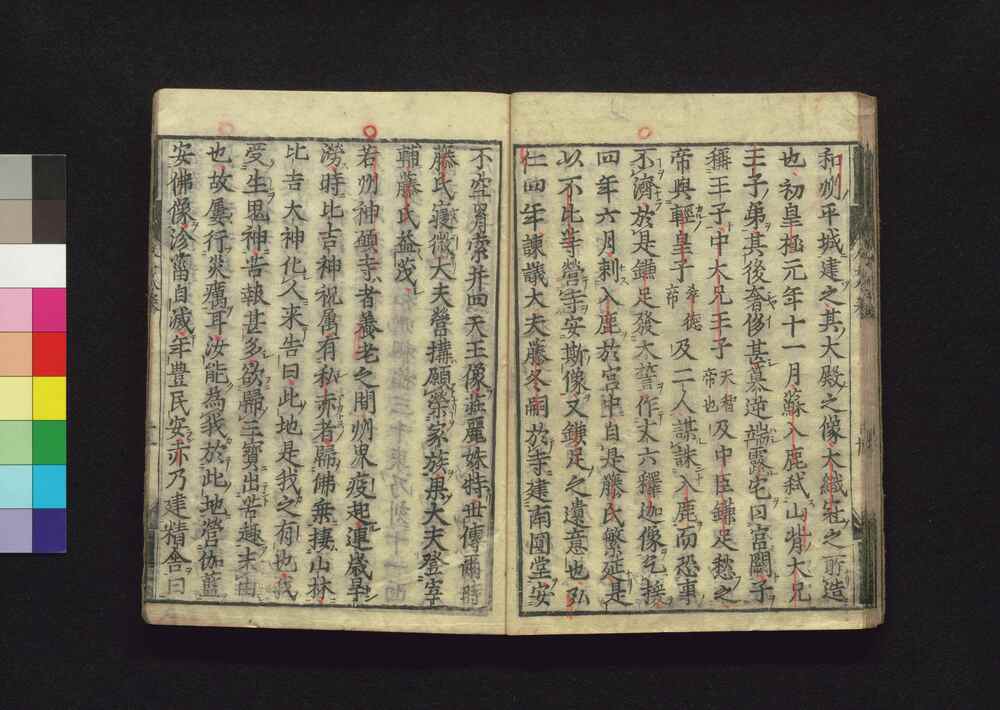 和州平城建之其大殿之像大織冠之所造
也初皇極元年十一月蘇入鹿弑山背大兄
王子弟其後奢侈甚募造端露宅曰宮闕子
稱王子中大兄王子天智帝也及中臣鎌足愁之
帝與輕皇子孝德帝及二人謀誅入鹿而恐事
不濟於是鎌足發大誓作丈六釋迦像乞援
四年六月刺入鹿於宮中自是藤氏繁延是
以不比等營寺安斯像又鎌足之遺意也弘
仁四年諫議大夫藤冬嗣於寺建南圓堂安
不空羂索并四天王像莊麗姝特世傳爾時
藤氏寢微大夫營搆願榮家族果大夫登宰
輔藤氏益茂
若州神願寺者養老之間州界疫起連歲旱
澇時比古神祝屬有私赤者歸佛乘捿山林
比古大神化人来告曰此地是我之有也我
受生鬼神苦報甚多欲歸三寶出苦趣未由
也故屢行災癘耳汝能為我於此地營伽藍
安佛像沴癘自滅年豊民安赤乃建精舍曰